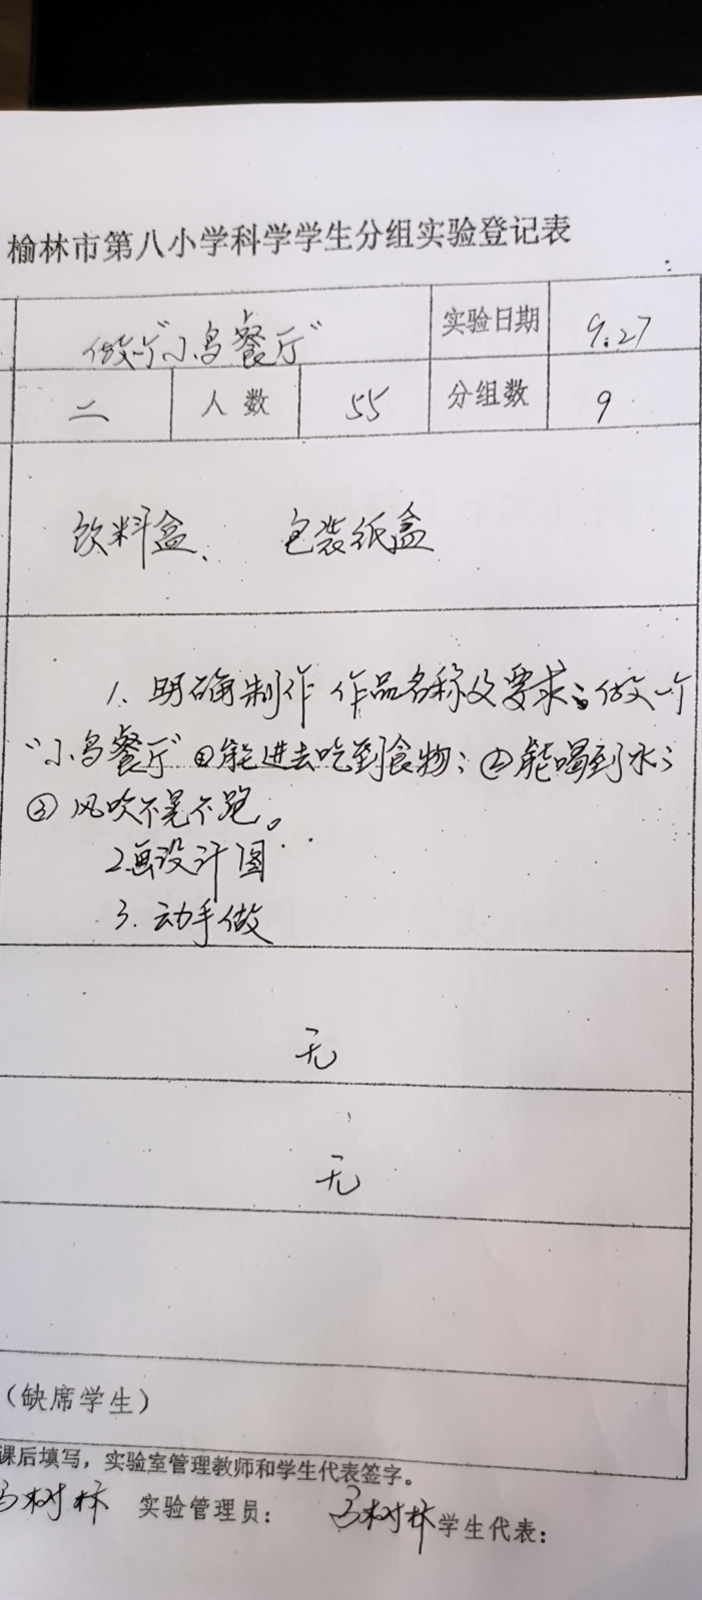 榆林市第八小学科学学生分组实验登记表
做一个“小鸟餐厅” 实验日期 9.27
二 人数 55 分组数 9
饮料盒、 包装纸盒
1、明确制作 作品名称及要求:做一个
“小鸟餐厅”①能进去吃到食物;②能喝到水;
③风吹不晃不跑。
2.画设计图
3.动手做
无
无
(缺席学生)
课后填写,实验室管理教师和学生代表签字。
树林 实验管理员: 马树林 学生代表: